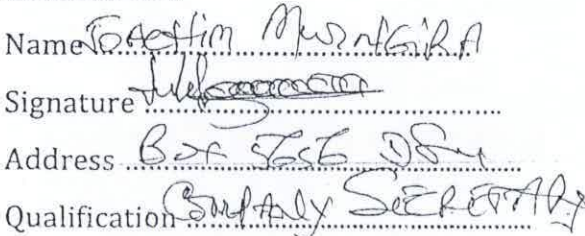 Name JOACHIM MURNGIRA
Signature
Address Box 5656 DSM
Qualification COMPANY SECRETARY